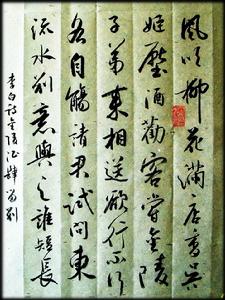 風吹柳花滿店香吳
姬壓酒勸客嘗金陵
子弟來相送欲行不行
各自觴請君試問東
流水別意與之誰短長
李白詩金陵酒肆留別